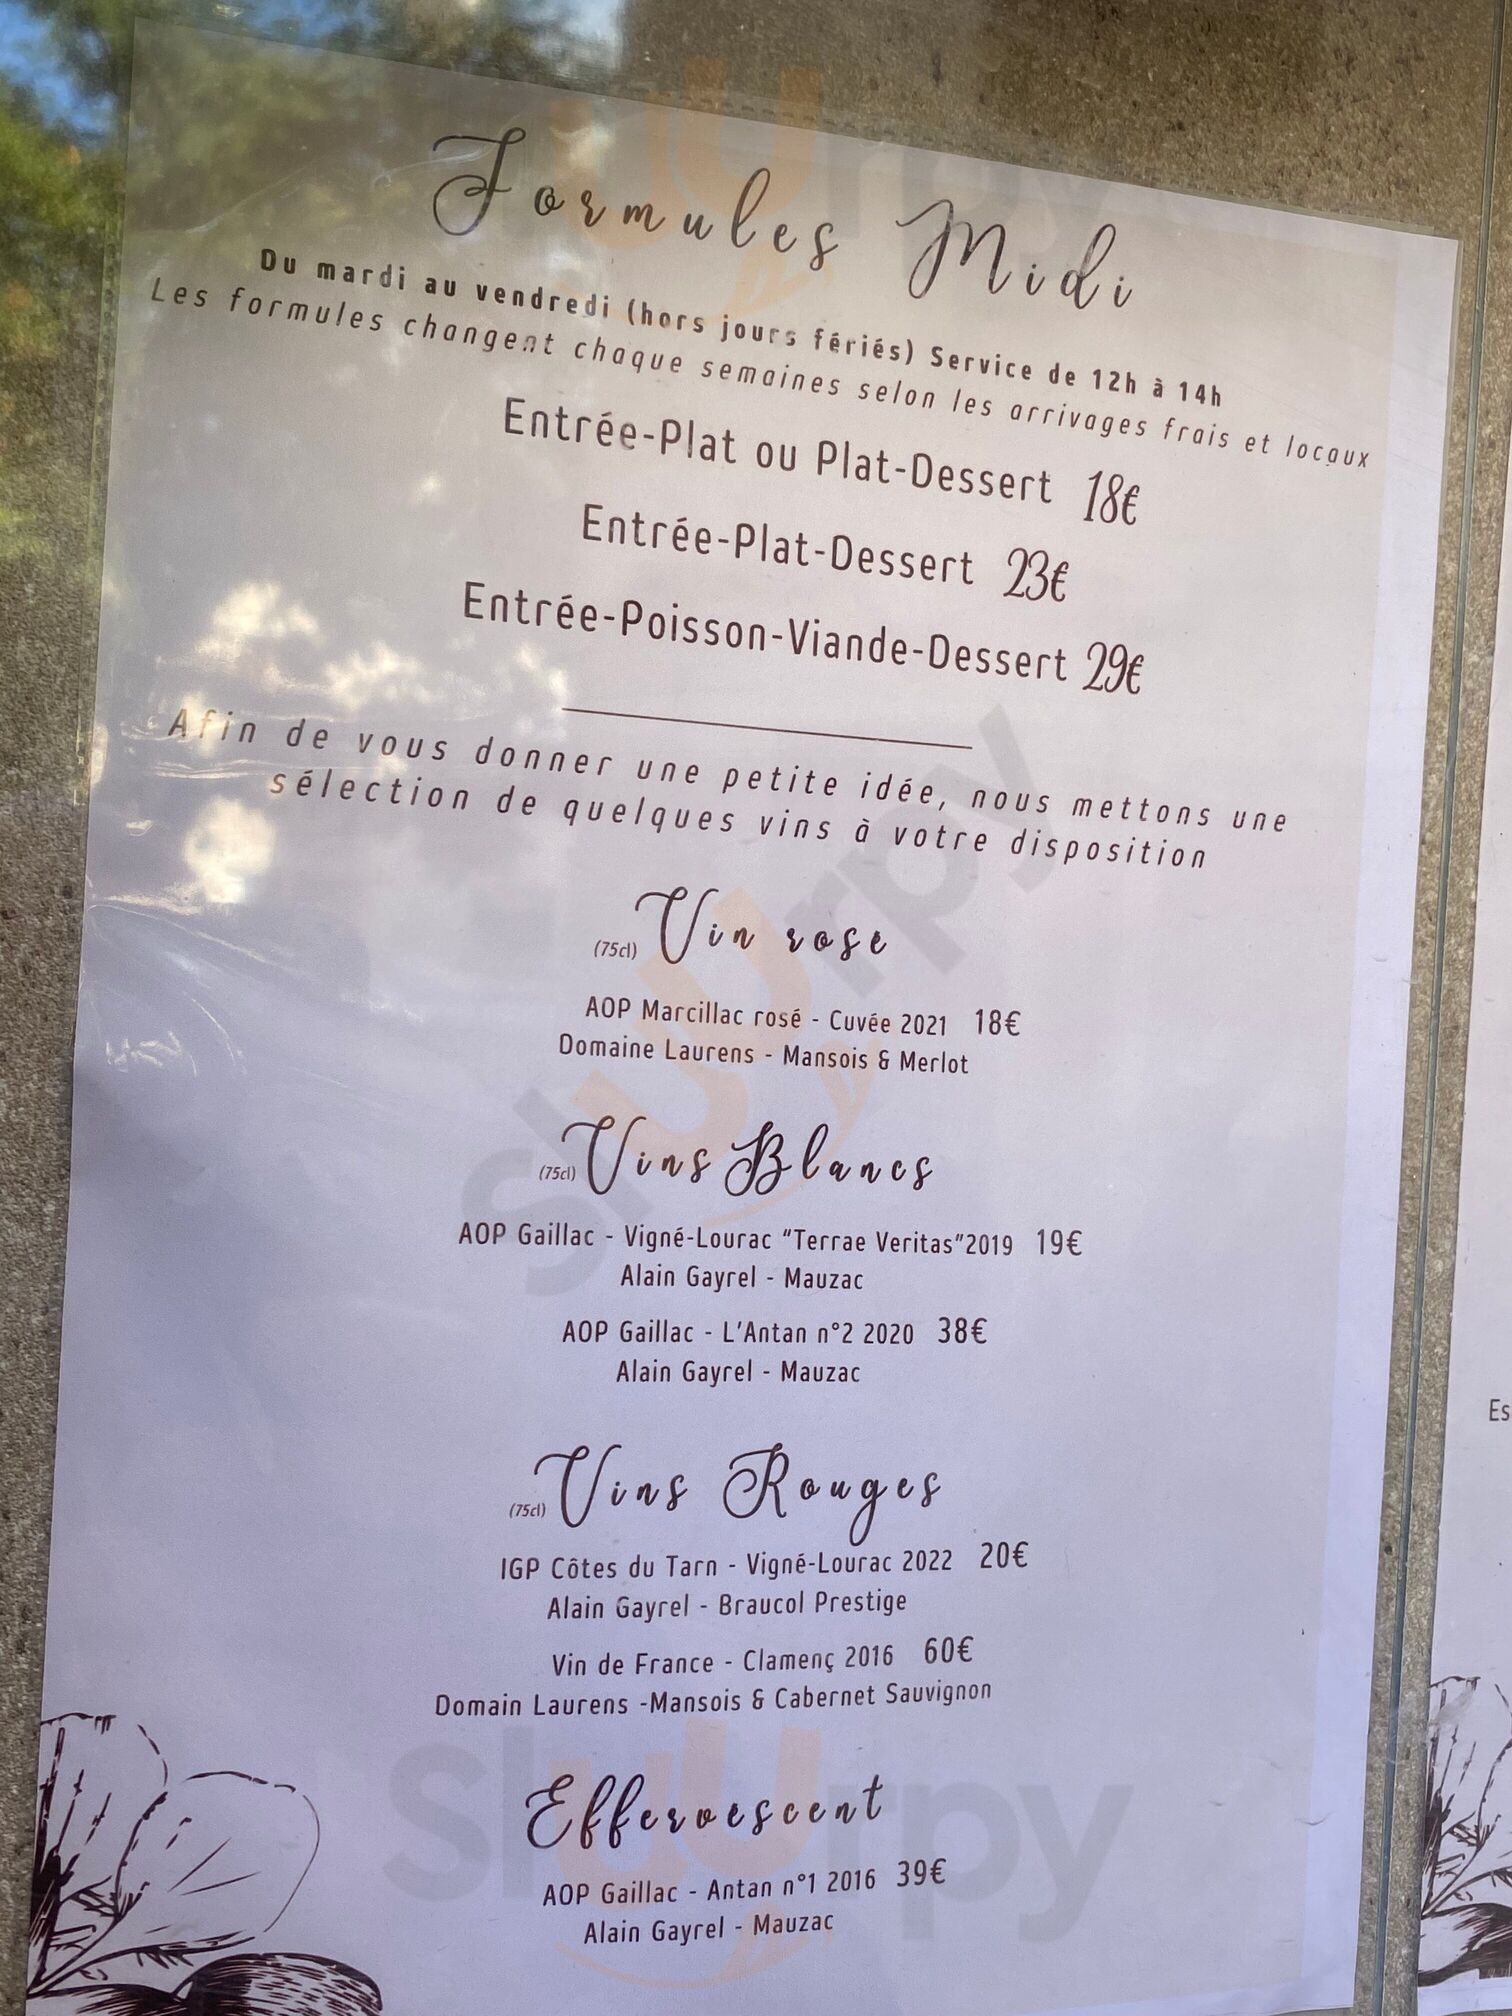 Formules Midi
Du mardi au vendredi (hors jours fériés) Service de 12h à 14h
Les formules changent chaque semaines selon les arrivages frais et locaux
Entrée-Plat ou Plat-Dessert 18€
Entrée-Plat-Dessert 23€
Entrée-Poisson-Viande-Dessert 29€
Afin de vous donner une petite idée, nous mettons une
sélection de quelques vins à votre disposition
(75cl) Vin rose
AOP Marcillac rosé - Cuvée 2021 18€
Domaine Laurens - Mansois & Merlot
(75cl) Vins Blancs
AOP Gaillac - Vigné-Lourac "Terrae Veritas"2019 19€
Alain Gayrel - Mauzac
AOP Gaillac - L'Antan n°2 2020 38€
Alain Gayrel - Mauzac
(75cl) Vins Rouges
IGP Côtes du Tarn - Vigné-Lourac 2022 20€
Alain Gayrel - Braucol Prestige
Vin de France - Clamenç 2016 60€
Domain Laurens -Mansois & Cabernet Sauvignon
Effervescent
AOP Gaillac - Antan n°1 2016 39€
Alain Gayrel - Mauzac
Es
Sluurpy
Sluurpy
Sluurpy